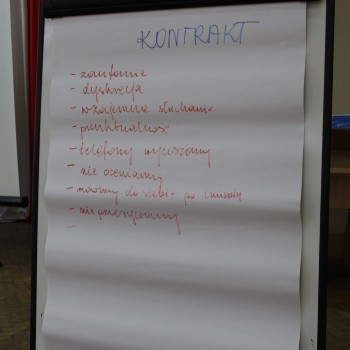 KONTRAKT
- zaufanie
- dyskrecja
- wzajemne słuchanie
- punktualność
- telefony wyciszamy
- nie oceniamy
- mówimy do siebie po imieniu
- nie przerywamy
-